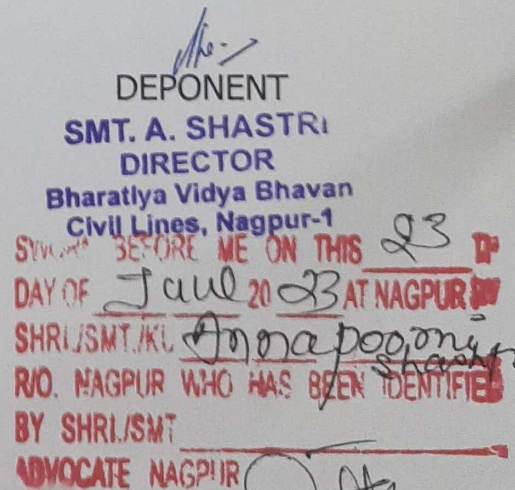 DEPONENT
SMT. A. SHASTRI
DIRECTOR
Bharatiya Vidya Bhavan
Civil Lines, Nagpur-1
SWORN BEFORE ME ON THIS 23
DAY OF 20 23 AT NAGPUR BY
SHRI./SMT./KU. Annapoorni Shastri
R/O. NAGPUR WHO HAS BEEN IDENTIFIED
BY SHRI./SMT
ADVOCATE NAGPUR